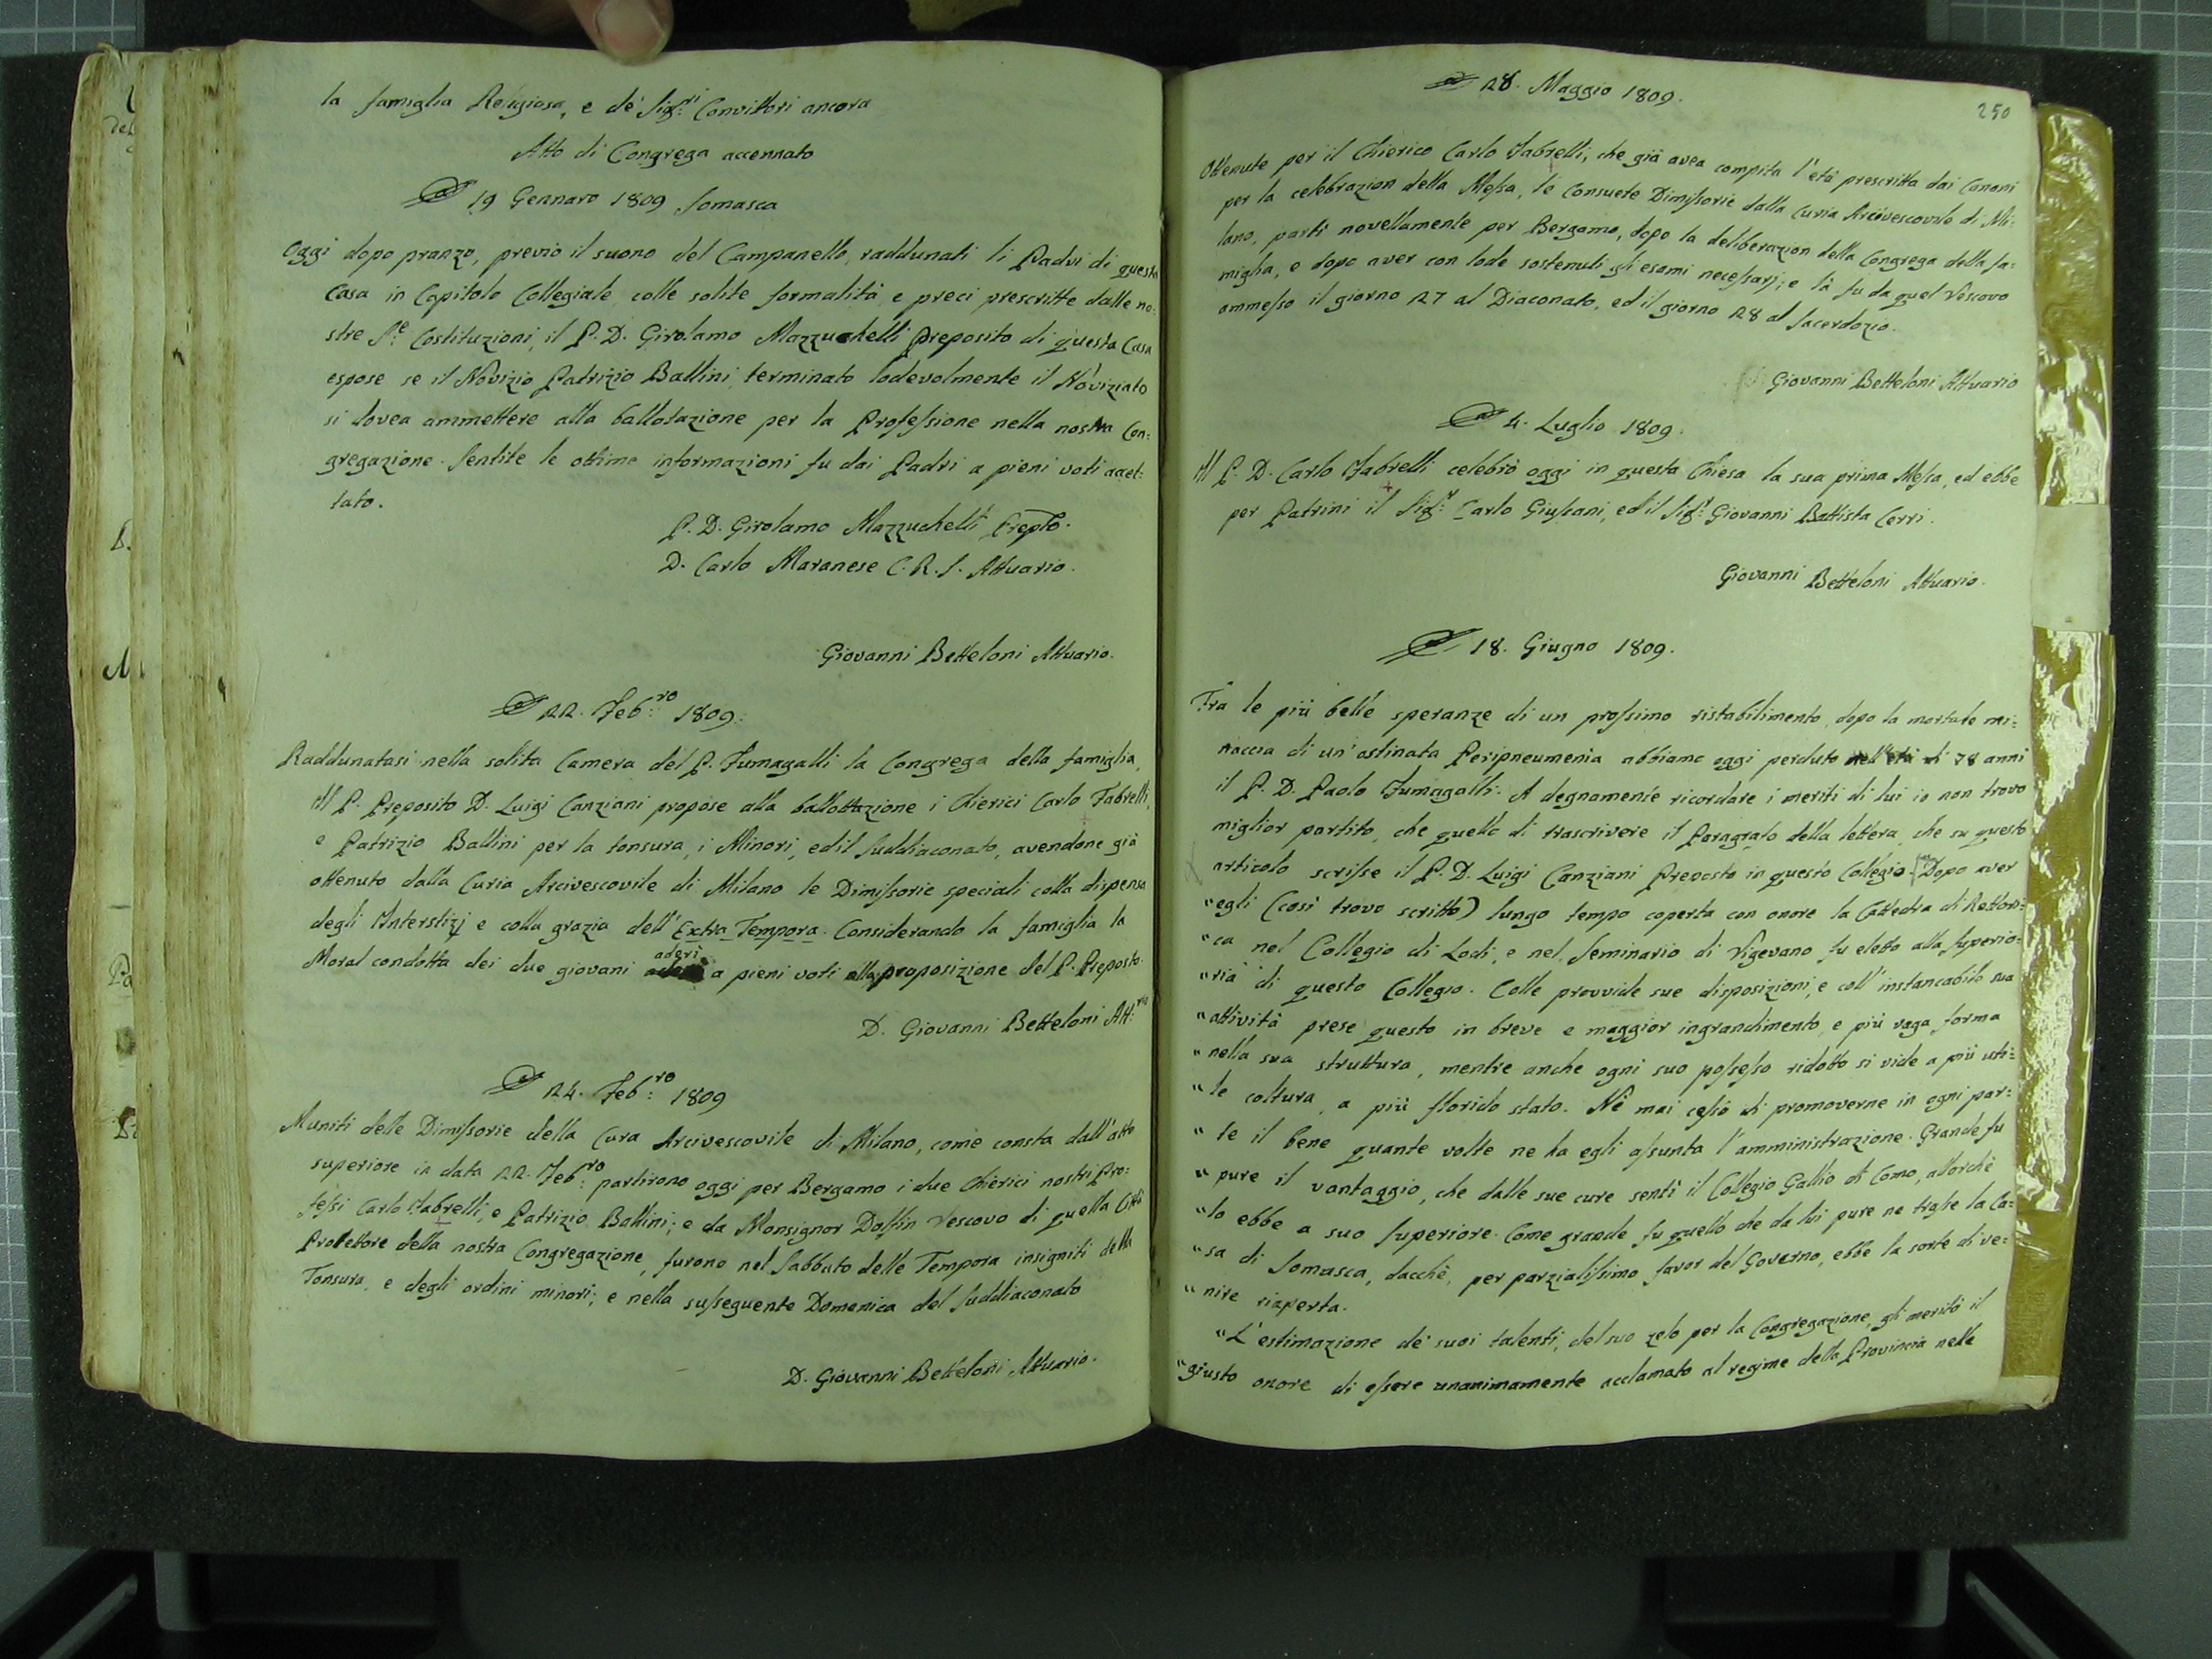 la famiglia Religiosa, e de' Sig:ri Convittori ancora
Atto di Congrega accennato
19 Gennaro 1809 Somasca
Oggi dopo pranzo, previo il suono del Campanello, raddunati li Padri di questa
Casa in Capitolo Collegiale colle solite formalità, e preci prescritte dalle no:
stre S.e Costituzioni, il P. D. Girolamo Mazzuchelli Preposito di questa Casa
espose se il Novizio Patrizio Ballini, terminato lodevolmente il Noviziato
si dovea ammettere alla ballotazione per la Professione nella nostra Con:
gregazione. Sentite le ottime informazioni fu dai Padri a pieni voti accet:
tato.
P. D. Girolamo Mazzuchelli Prepto.
D. Carlo Maranese C. R. S. Attuario.
Giovanni Betteloni Attuario.
22. Feb:ro 1809:
Raddunatasi nella solita Camera del P. Fumagalli la Congrega della famiglia,
Il P. Preposito D. Luigi Canziani propose alla ballottazione i Chierici Carlo Fabrelli,
e Patrizio Ballini per la tonsura, i Minori, ed il Suddiaconato, avendone già
ottenuto dalla Curia Arcivescovile di Milano le Dimissorie speciali colla dispensa
degli Interstizj e colla grazia dell' Extra Tempora. Considerando la famiglia la
Moral condotta dei due giovani aderì a pieni voti alla proposizione del P. Preposto.
D. Giovanni Betteloni Att:rio
24. Feb:ro 1809
Muniti delle Dimissorie della Cura Arcivescovile di Milano, come consta dall'atto
superiore in data 22. Feb:ro partirono oggi per Bergamo i due Chierici nostri Pro:
fessi Carlo Fabrelli, e Patrizio Ballini; e da Monsignor Dolfin Vescovo di quella Città
Protettore della nostra Congregazione, furono nel Sabbato delle Tempora insigniti della
Tonsura, e degli ordini minori; e nella susseguente Domenica del Suddiaconato
D. Giovanni Betteloni Attuario.
28. Maggio 1809.
250
Ottenute per il Chierico Carlo Fabrelli, che già avea compita l'età prescritta dai Canoni
per la celebrazion della Messa, le Consuete Dimissorie dalla Curia Arcivescovile di Mi:
lano, partì novellamente per Bergamo, dopo la deliberazion della Congrega della fa:
miglia, e dopo aver con lode sostenuti gli esami necessarj; e là fu da quel Vescovo
ammesso il giorno 27 al Diaconato, ed il giorno 28 al Sacerdozio.
Giovanni Betteloni Attuario
4. Luglio 1809.
Il P. D. Carlo Fabrelli celebrò oggi in questa Chiesa la sua prima Messa, ed ebbe
per Patrini il Sig:r Carlo Giussani, ed il Sig:r Giovanni Battista Cerri.
Giovanni Betteloni Attuario.
18. Giugno 1809.
Fra le più belle speranze di un prossimo ristabilimento, dopo la mortale mi:
naccia di un'ostinata Peripneumenia abbiamo oggi perduto nell'età di 78 anni
il P. D. Paolo Fumagalli. A degnamente ricordare i meriti di lui io non trovo
miglior partito, che quello di trascrivere il Paragrafo della lettera, che su questo
articolo scrisse il P. D. Luigi Canziani Preposto in questo Collegio. Dopo aver
"egli (così trovo scritto) lungo tempo coperta con onore la Cattedra di Rettori:
"ca nel Collegio di Lodi, e nel Seminario di Vigevano, fu eletto alla Superio:
"rià di questo Collegio. Colle provvide sue disposizioni, e coll' instancabile sua
"attività prese questo in breve e maggior ingrandimento, e più vaga forma
"nella sua struttura, mentre anche ogni suo possesso ridotto si vide a più uti:
"le coltura, a più florido stato. Nè mai cessò di promoverne in ogni par:
"te il bene quante volte ne ha egli assunta l'amministrazione. Grande fu
"pure il vantaggio, che dalle sue cure sentì il Collegio Gallio di Como, allorchè
"lo ebbe a suo Superiore. Come grande fu quello che da lui pure ne trasse la Ca:
"sa di Somasca, dacchè, per parzialissimo favor del Governo, ebbe la sorte di ve:
"nire riaperta.
"L'estimazione de' suoi talenti, del suo zelo per la Congregazione, gli meritò il
"giusto onore di essere unanimamente acclamato al regime della Provincia nelle